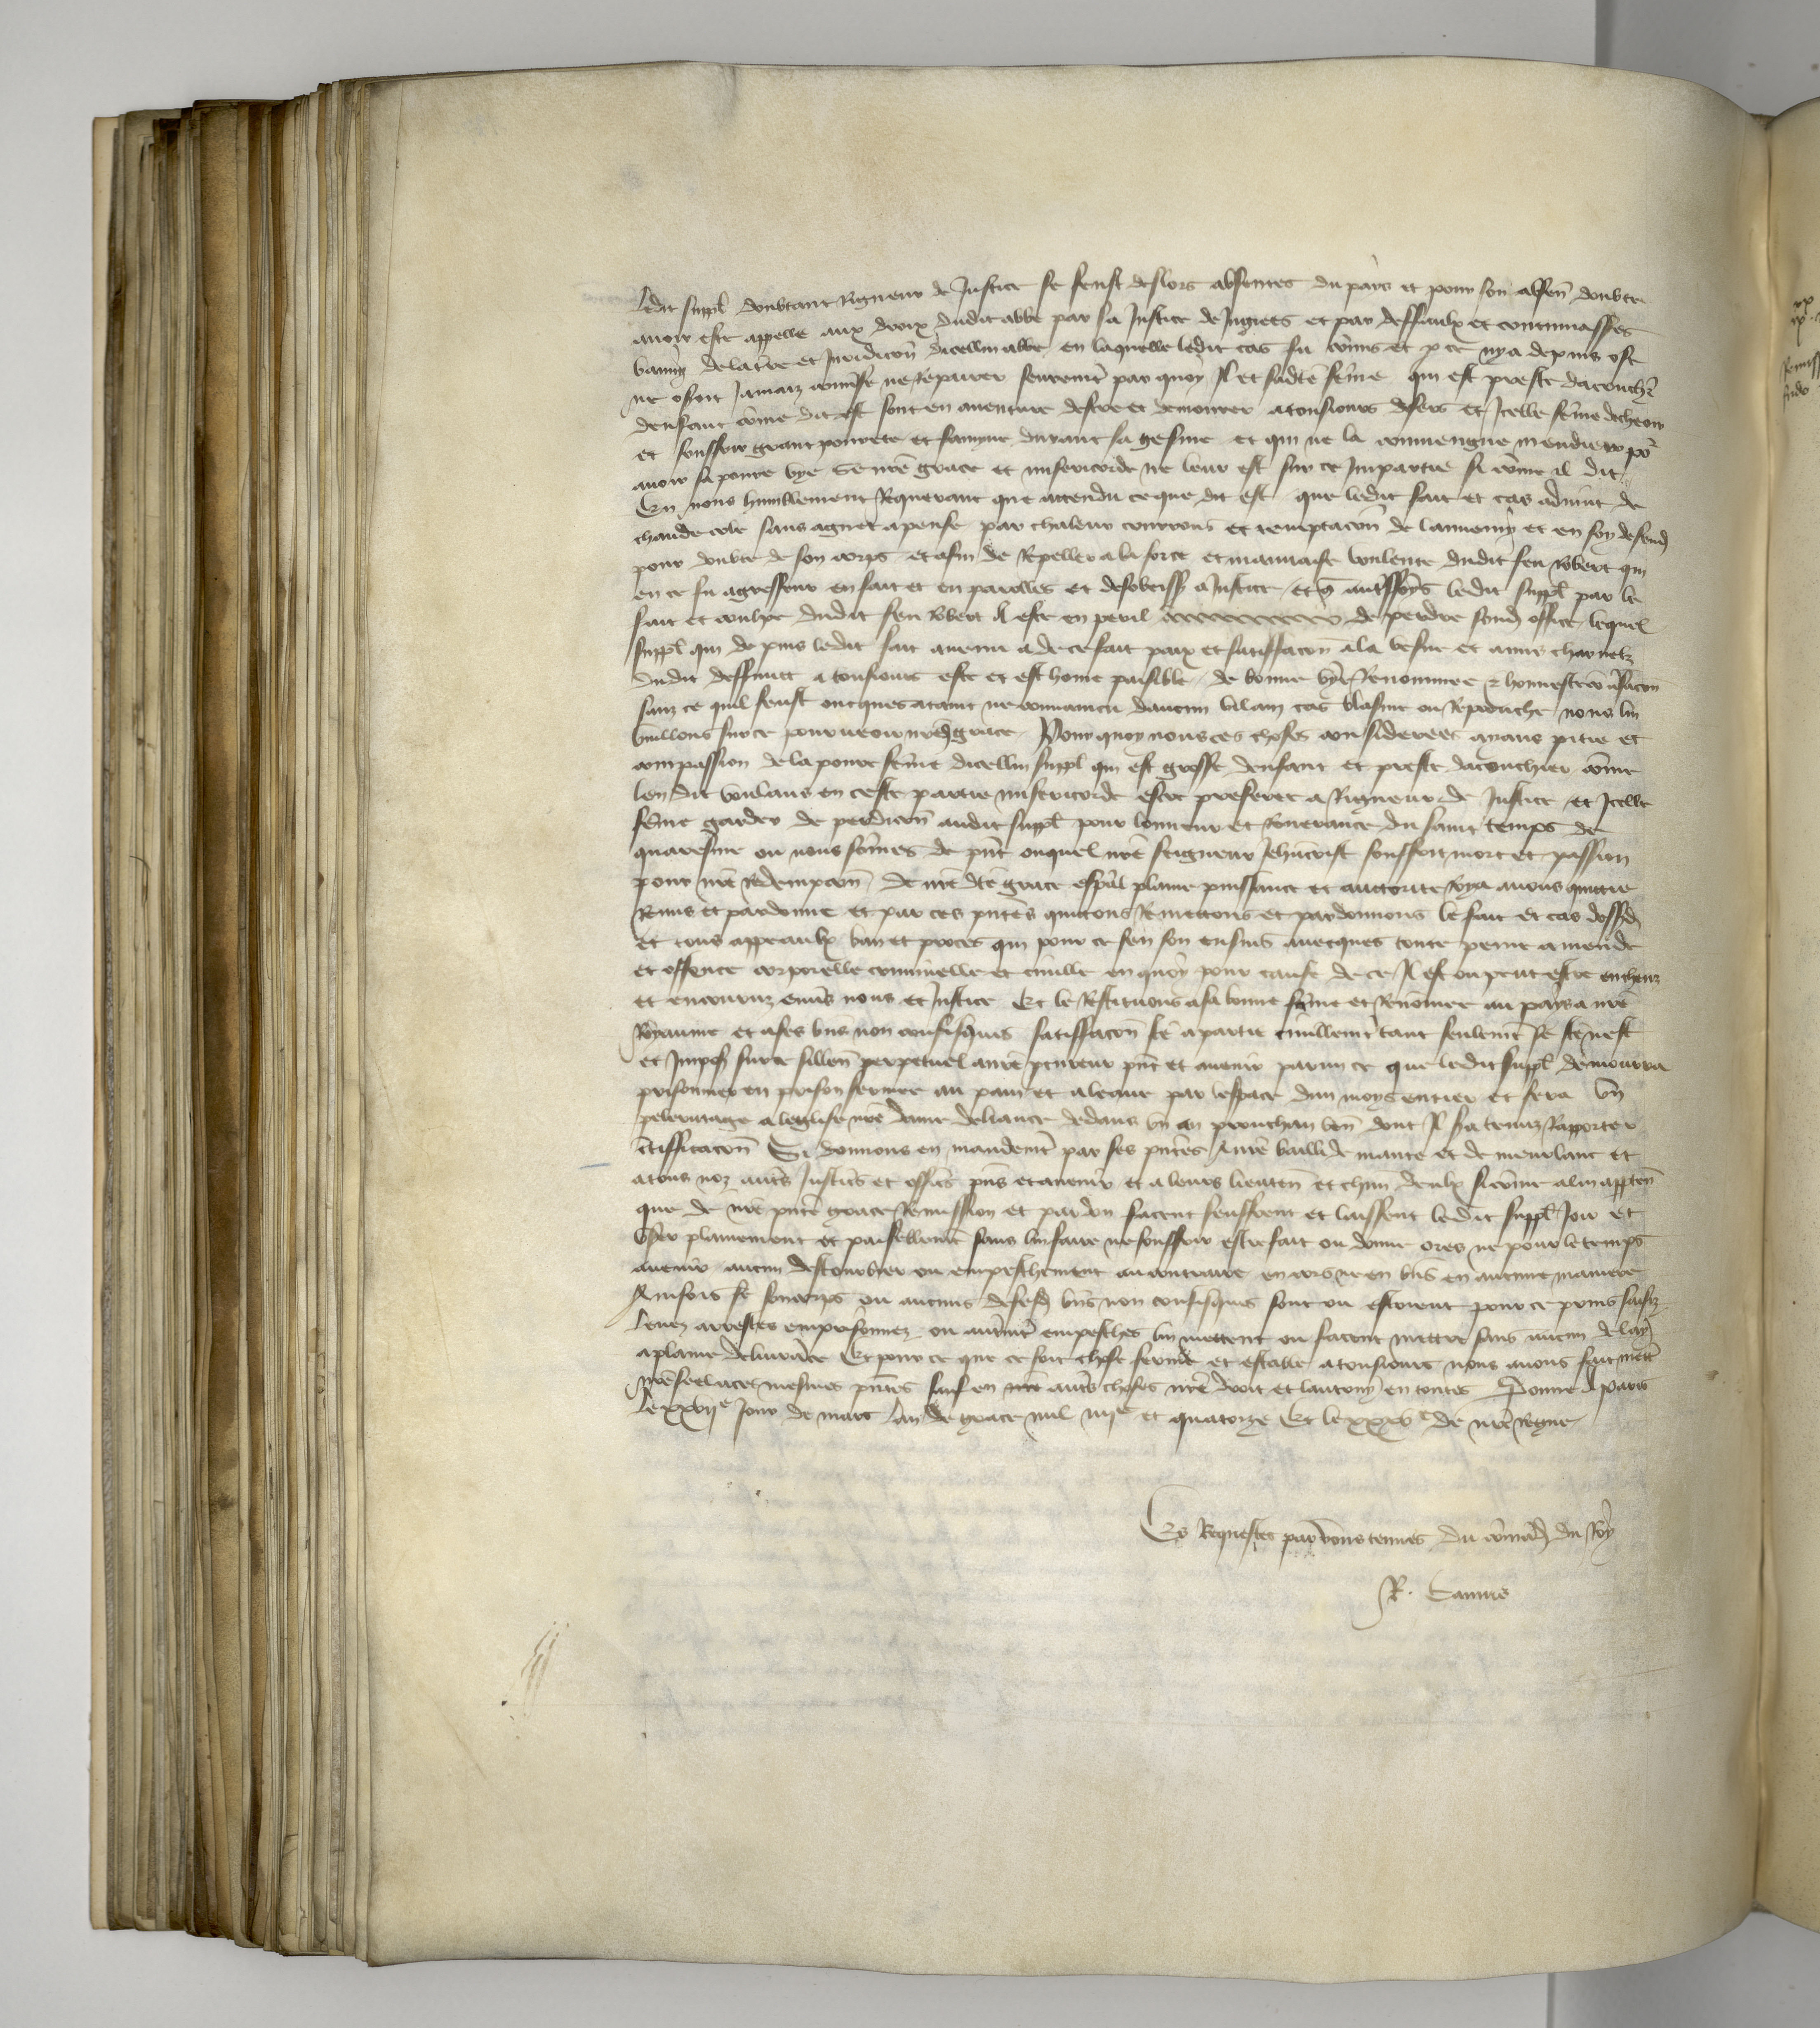 Ledit suppl doubtant Rigueur de Justice se feust deslors absentes du pais et pour son absen doubte
avoir este appelle aux droix dudit abbe par sa Justice de et par deffaulx et contumasses
banny de la tre et Juridicon dicellui abbe en laquelle ledit cas fu comis et p ce ny a depuis ose
ne oseroit Jamaiz ne Repairer seuremt par quoy Il et sadte feme qui est preste dacouchr
denfant come dit est sont en aventure destre et demourer a tousiours desers et Icelle feme decheoir
et souffrir grant povrete et famyne durant sa gesine et qui ne la conviengne mendier por
avoir sa povre vye Se nre grace et misericorde ne leur est sur ce Impartie si come il dit
En nous humblement Requerant que attendu ce que dit est que ledit fait et cas advint de
chaude cole sans aguet apense par chaleur courrous et temptacon de lannemy et en soy defend
pour doubte de son corps et afin de Repeller a la force et mauvaise voulente dudit feu Robert qui
en ce fu agresseur en fait et en parolles et desobeiss a Justice et q ledit suppl par le
fait et coulpe dudit feu Robert a este en peril de perdre sond office lequel
suppl qui depuis ledit fait avenu a de ce fait paix et satiffacon a la vefve et amis charnelz
dudit deffunct a tousiours este et est home paisible de bonne vye Renommee et honneste
sanz ce quil feust oncques ataint ne convaincu daucun vilain cas blasme ou Reprouche nous lui
vueillons sur ce pourveoir nred grace Pour quoy nous ces choses considerees ayans pitie et
compassion de la povre feme dicellui suppl qui est grosse denfant et preste dacouchier come
len dit voulans en ceste partie misericorde estre preferee a Rigueur de Justice et Icelle
feme garder de perdicon audit suppl pour lonneur et Reverance du saint temps de
quaresme ou nous somes de pnt ouquel nre seigneur Jhucrist souffrit mort et passion
pour nre Redempcon De nre dte grace espal plaine puissance et auctorite Roya avons quittie
Remis et pardonne et par ces pntes quittons Remettons et pardonnons le fait et cas dessusd
et tous appeaulx ban et proces qui pour ce sen son ensuis avecques toute peine amende
et offence corporelle criminelle et civille en quoy pour cause de ce Il est ou peut estre encheuz
et encouruz envs nous et Justice Et le Restituons a sa bonne fame et Renomee au pays a nre
Royaume et a ses bns non confisques satiffacon fte a partie civillemt tant seulemt se fte nest
et Impos sur ce sillen perpetuel a nre pcureur pnt et avenir parmi ce que ledit suppl demourra
prisonnier en prison fermee au pain et a leaue par lespace dun moys entier et fera un
pelerinage a leglise nre dame de liance dedans un an prouchain ven dont Il sra tenuz Rapporter
ctifficacon Si donnons en mandemt par ses pntes A nre bailli de mante et de meurlant et
a tous noz autrs Justics et offics pns et avenir et a leurs lieuten et chun deulx si come a lui apptendr
que de nre pnte grace Remission et pardon facent seuffrent et laissent ledit suppl Joir et
User plainement et paisiblemt sans lui faire ne souffrir estre fait ou donne ores ne pour le temps
avenir aucun destourbier ou empeschement au contraire en corps ne en bns en aucune maniere
Aincois se son corps ou aucuns de sesd bns non confisques sont ou estoient pour ce prins saisiz
levez arrestes emprisonnez ou autremt empesches lui mettent ou facent mettre sans aucun delay
a plaine delivrace Et pour ce que ce soit chose ferme et estable a tousiours nous avons fait mettr
nre seel a ces mesmes pntes sauf en autrs choses nre droit et lautruy en toutes Donne A paris
Le xxvije Jour de mars Lan de grace mil iiijc et quatorze Et le xxxve de nre Regne
Es Requestes par vous tenues du comad du Roy
R. Camus